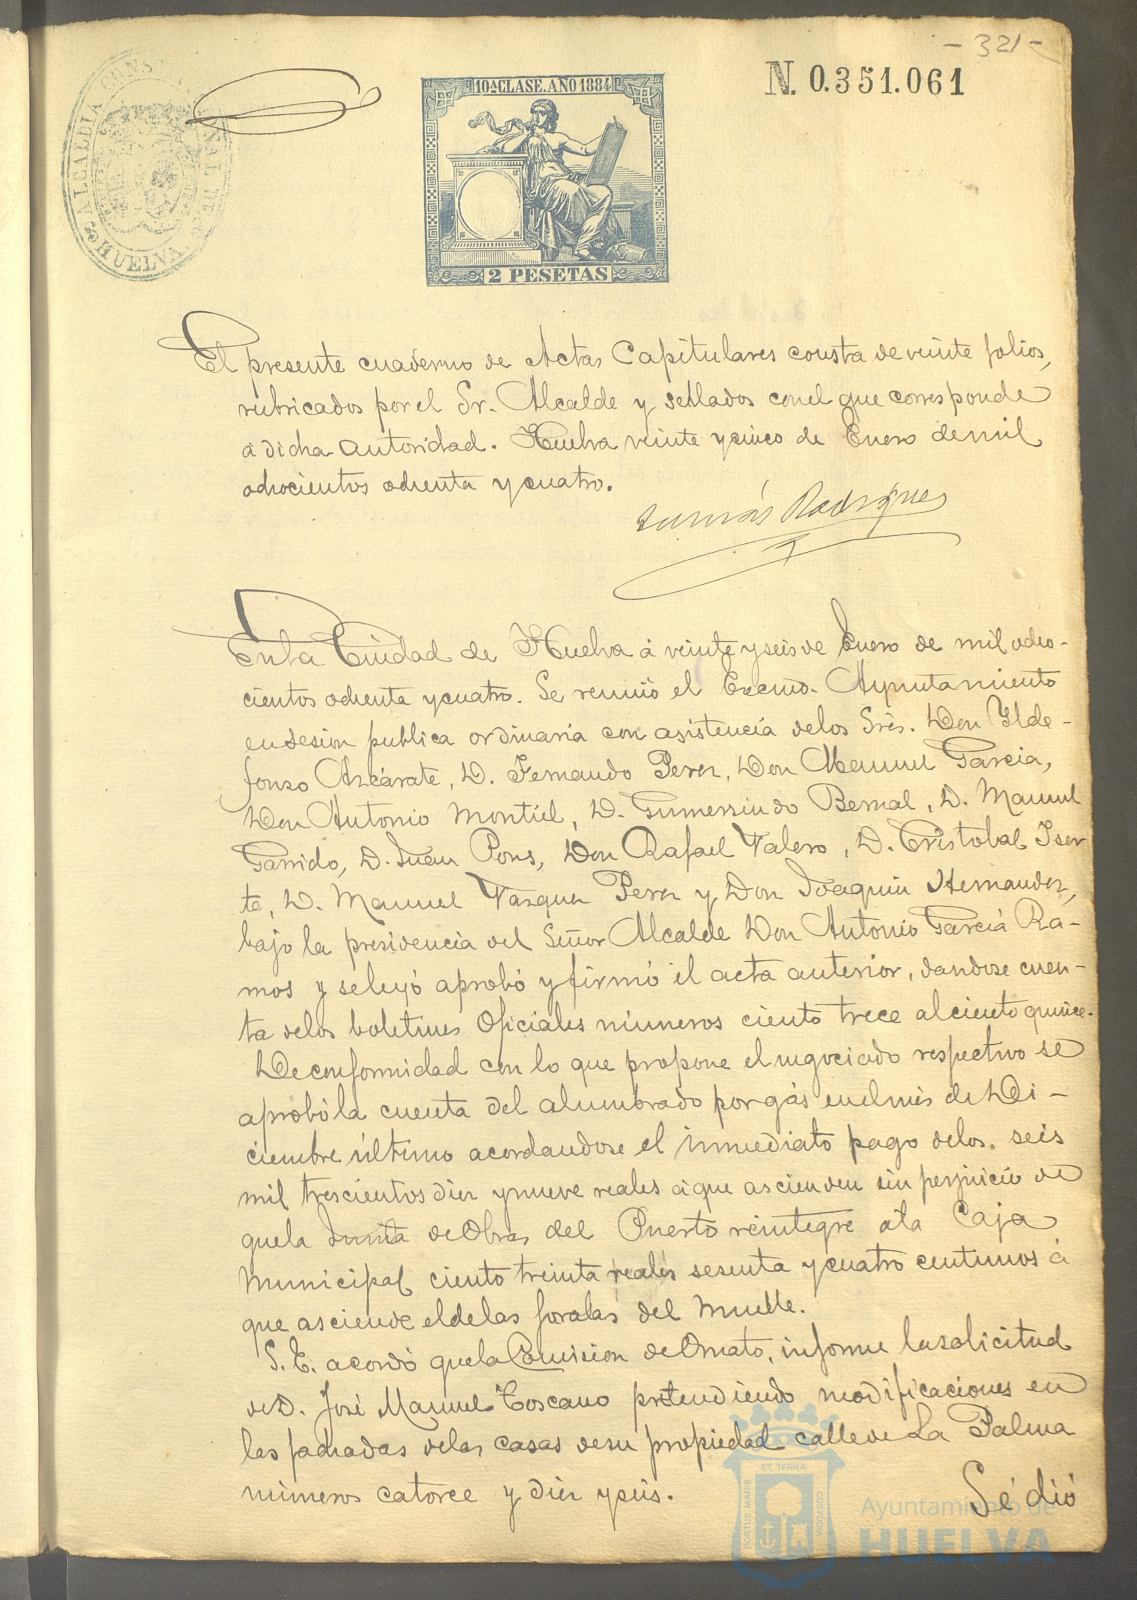 - 321 -
N. 0.351.061
10ª CLASE. AÑO 1884
2 PESETAS
ALCALDIA CONSTITUCIONAL DE HUELVA
El presente cuaderno de Actas Capitulares consta de veinte folios,
rubricados por el Sr. Alcalde y sellados con el que corresponde
á dicha autoridad. Huelva veinte y cinco de Enero de mil
ochocientos ochenta y cuatro.
Tomás Rodriguez
En la Ciudad de Huelva á veinte y seis de Enero de mil ocho-
cientos ochenta y cuatro. Se reunió el Excmo. Ayuntamiento
en sesion publica ordinaria con asistencia de los Sres. Don Ylde-
fonso Azcárate, D. Fernando Perez, Don Manuel Garcia,
Don Antonio Montiel, D. Gumersindo Bernal, D. Manuel
Garrido, D. Juan Pons, Don Rafael Valero, D. Cristobal Iser
te, D. Manuel Vazquez Perez y Don Joaquin Hernandez,
bajo la presidencia del Señor Alcalde Don Antonio Garcia Ra-
mos y se leyó aprobó y firmó el acta anterior, dandose cuen-
ta de los boletines Oficiales números ciento trece al ciento quince.
De conformidad con lo que propone el negociado respectivo se
aprobó la cuenta del alumbrado por gás en el mes de Di-
ciembre último acordandose el inmediato pago de los seis
mil trescientos diez y nueve reales á que ascienden sin perjuicio de
que la Junta de Obras del Puerto reintegre á la Caja
Municipal ciento treinta reales sesenta y cuatro centimos á
que asciende el de las foralas del Muelle.
S. E. acordó que la Comision de Ornato, informe la solicitud
de D. José Manuel Toscano pretendiendo modificaciones en
las fachadas de las casas de su propiedad calle de La Palma
números catorce y diez y seis.
Se dió
PORTUS MARIS ET TERRÆ CUSTODIA
Ayuntamiento de
HUELVA